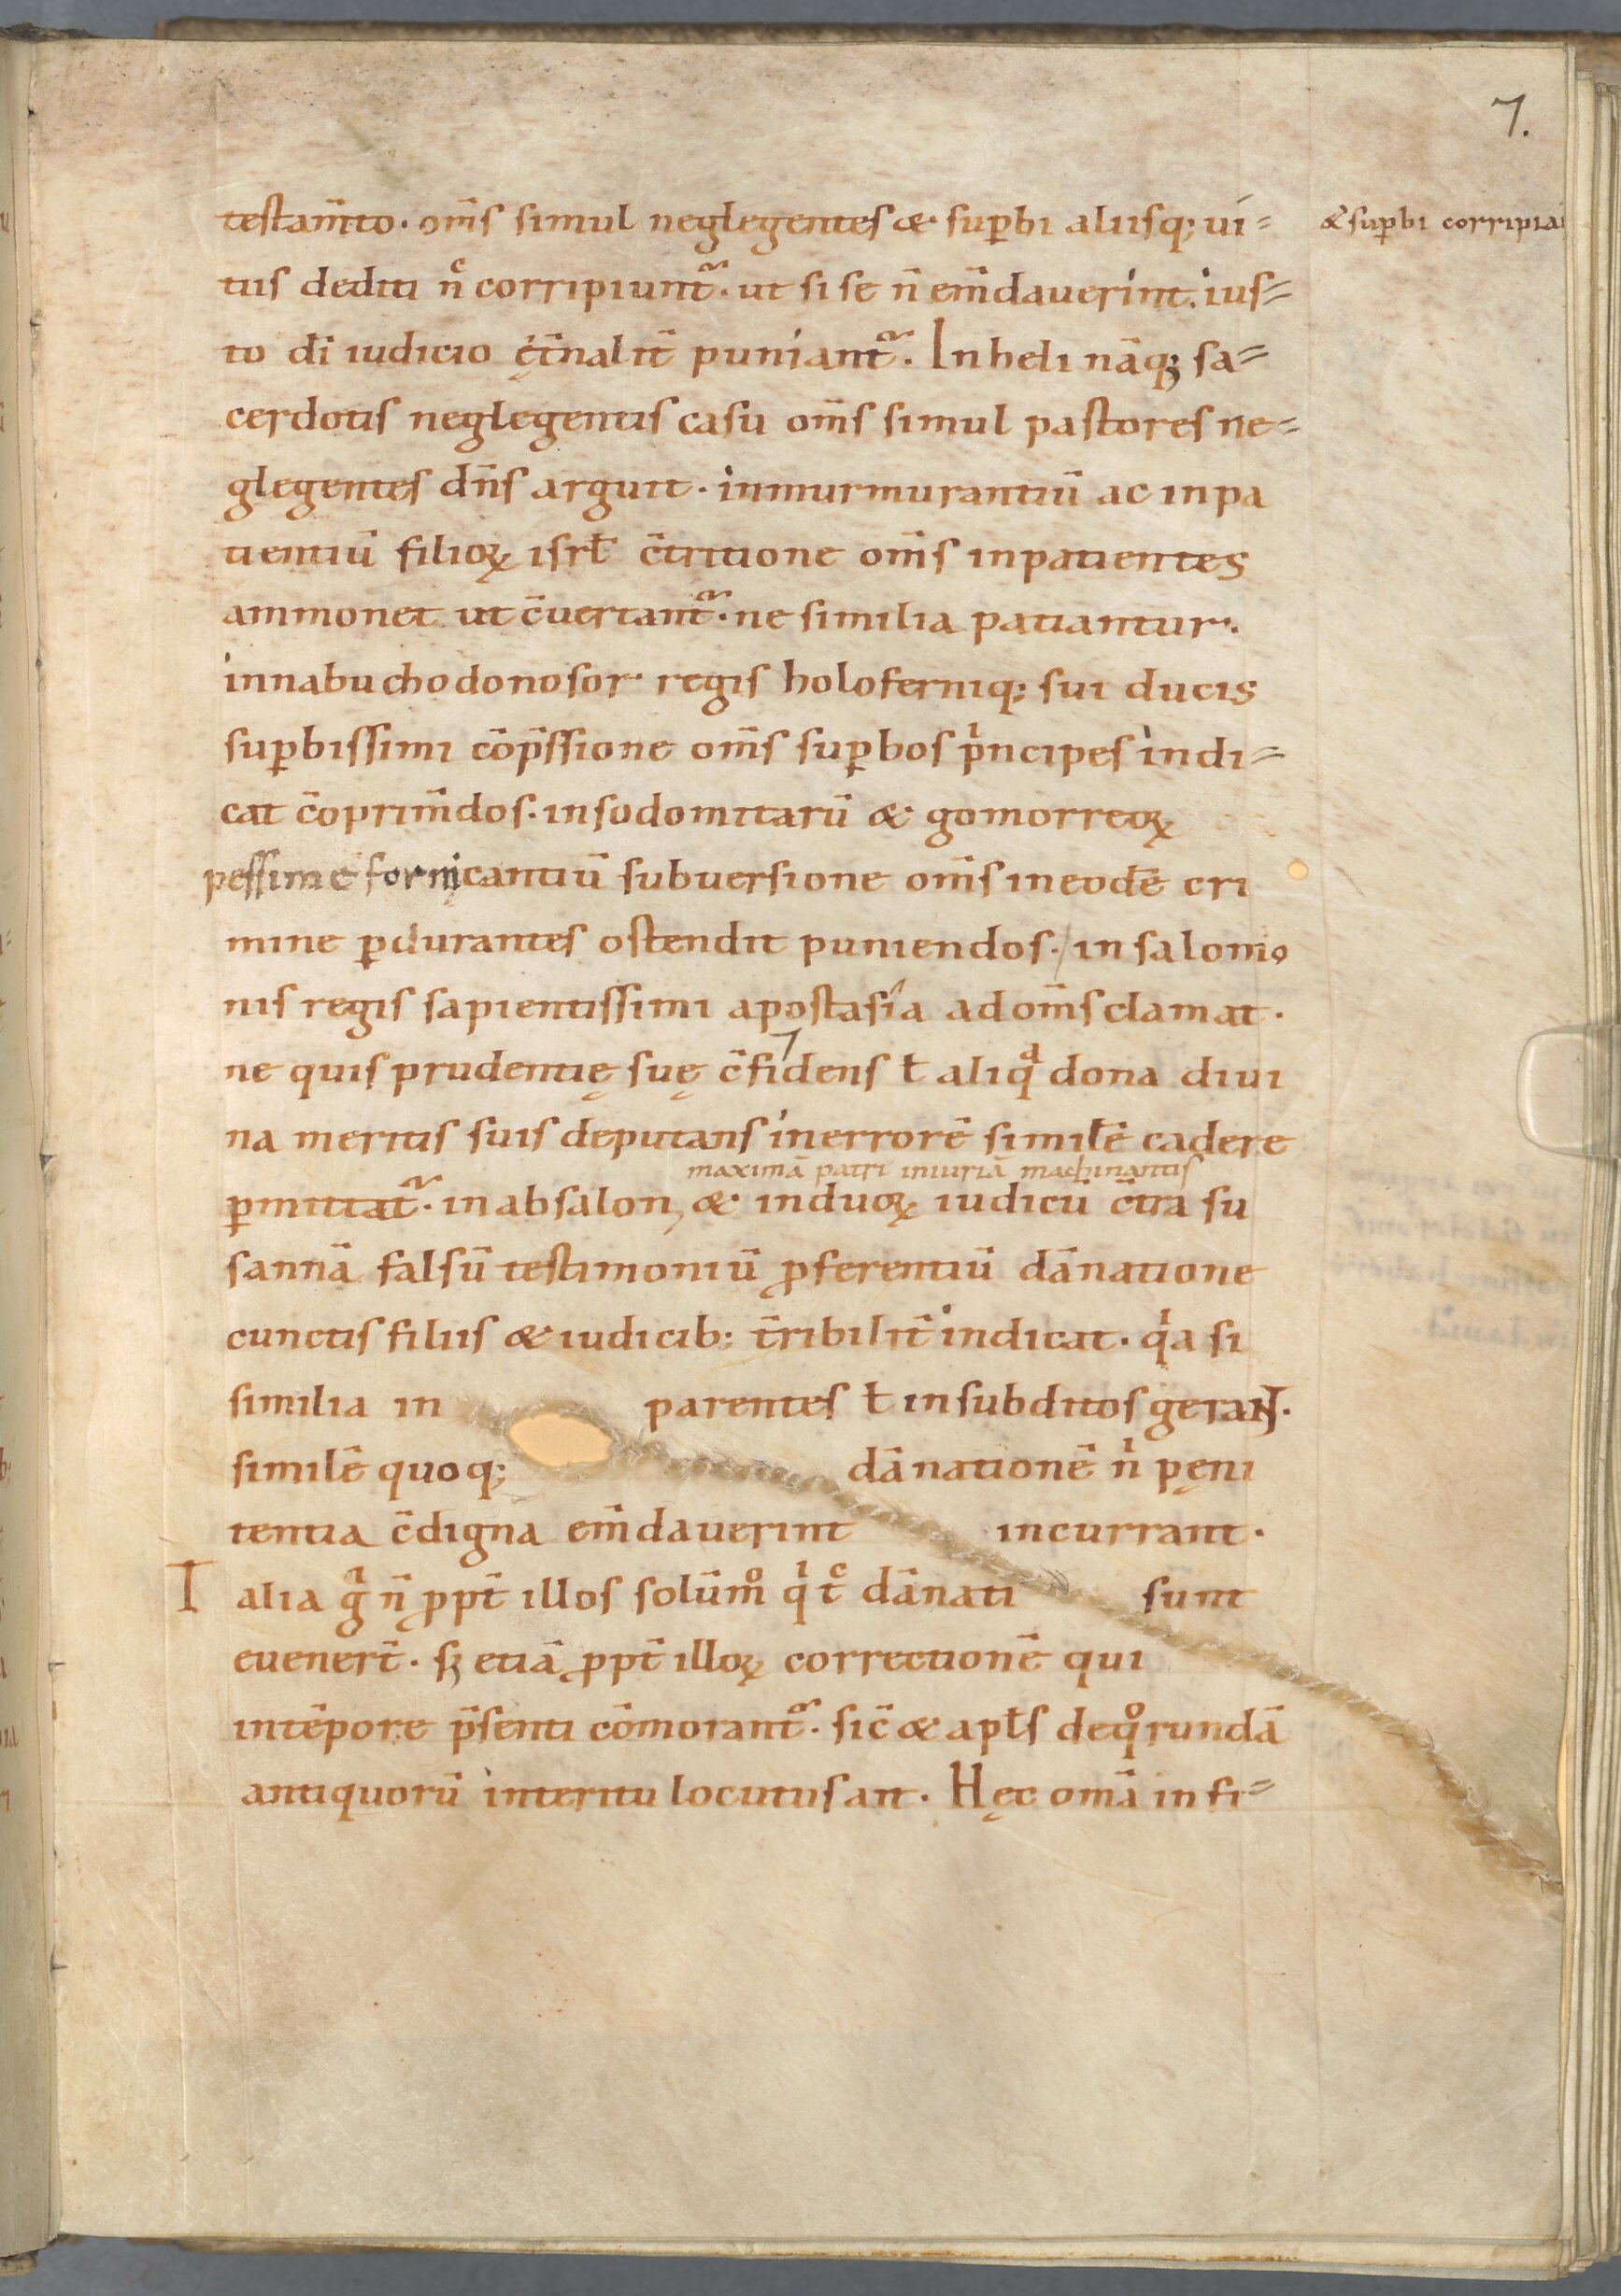 7.
testam̄to. om̄s simul neglegentes & suꝑbi aliisq; ui=
& suꝑbi corripia
tiis dediti n̄c corripiunt᷑. ut si se n̄ em̄dauerint. ius=
to dī iudicio ę̄t̄nalit̄ puniant᷑. In heli nāq; sa=
cerdotis neglegentis casu om̄s simul pastores ne=
glegentes dn̄s arguit. inmurmurantiū ac inpa
tientiū filioꝝ isrƚ c̄tritione om̄s inpatientes
ammonet ut c̄uertant᷑. ne similia patiantur.
innabuchodonosor regis holoferniq; sui ducis
suꝑbissimi cōp̄ssione om̄s suꝑbos pͥncipes indi=
cat c̄oprim̄dos. insodomitarū & gomorreoꝝ
pessime fornicantiū subuersione om̄s ineodē cri
mine ꝑdurantes ostendit puniendos. in salomo
nis regis sapientissimi apostasia ad om̄s clamat.
ne quis prudentię suę c̄fidens ƚ aliqͣ dona diui
na meritis suis deputans inerrorē similē cadere
maximā patri iniuriā machinantis
ꝑmittat᷑. in absalon, & induoꝝ iudicū c̄tra su
sannā falsū testimoniū ꝓferentiū dānatione
cunctis filiis & iudicib; t̄ribilit̄ indicat. qͥa si
similia in parentes ƚ insubditos gerant.
similē quoq; dānationē nͥ pęni
tentia c̄digna em̄dauerint incurrant.
Talia gͥ n̄ ꝓpt̄ illos solūmͦ qͥ tͨ dānati sunt
euenert̄. sꝫ etiā ꝓpt̄ illoꝝ correctionē qui
intēpore p̄senti cōmorant᷑. sic̄ & apƚs deqͦrundā
antiquorū interitu locutus ait. Hęc om̄a in fi=